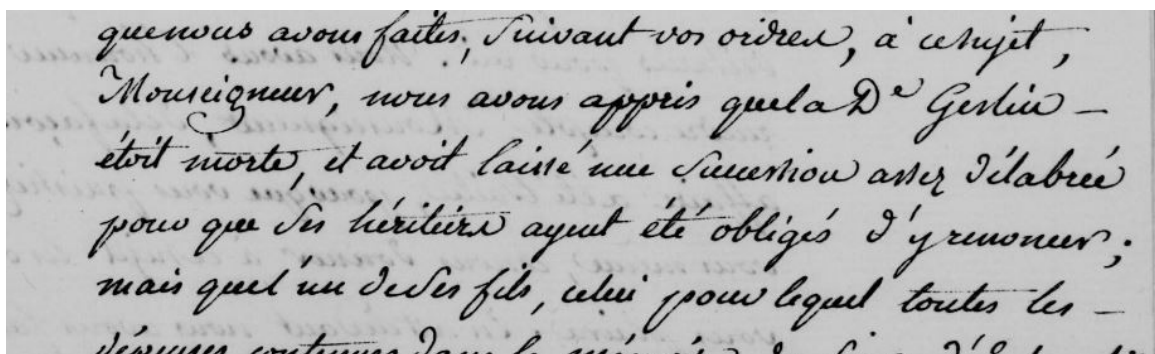 que nous avons faites, suivant vos ordres, à ce sujet,
Monseigneur, nous avons appris que la De Geslin -
étoit morte, et avoit laissé une succession assez délabrée
pour que ses héritiers ayent été obligés d'y renoncer ;
mais quel'un de ses fils, celui pour lequel toutes les -
dépenses contenues dans le mémoire